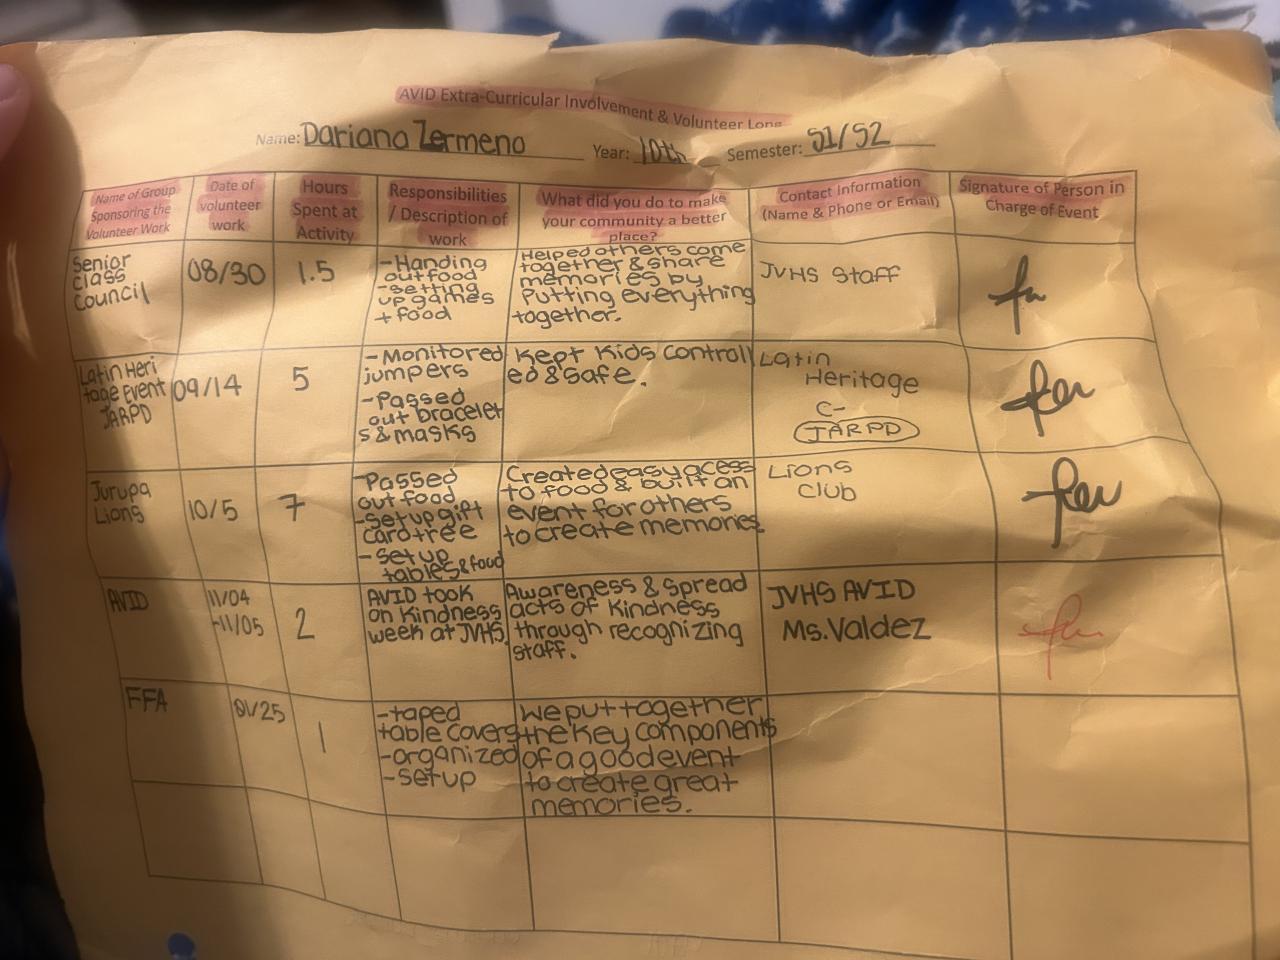 AVID Extra-Curricular Involvement & Volunteer Long
Name: Dariana Zermeno Year: 10th Semester: S1/S2
Name of Group
Sponsoring the
Volunteer Work
Date of
volunteer
work
Hours
Spent at
Activity
Responsibilities
/ Description of
work
What did you do to make
your community a better
place?
Contact Information
(Name & Phone or Email)
Signature of Person in
Charge of Event
Senior
Class
Council
08/30
1.5
-Handing
out food
-setting
up games
+ food
Helped others come
together & share
memories by
Putting everything
together.
JVHS Staff
Latin Heri
tage Event
JARPD
09/14
5
-Monitored
jumpers
-Passed
out bracelet
s & masks
Kept Kids Controll
ed & safe.
Latin
Heritage
C-
JARPD
Jurupa
Lions
10/5
7
-Passed
out food
-Set up gift
card tree
-Set up
tables & food
Created easy acess
to food & built an
event for others
to create memories.
Lions
Club
AVID
11/04
-11/05
2
AVID took
on Kindness
week at JVHS.
Awareness & Spread
acts of Kindness
through recognizing
staff.
JVHS AVID
Ms. Valdez
FFA
01/25
1
-taped
table covers
-organized
-setup
We put together
the key components
of a good event
to create great
memories.